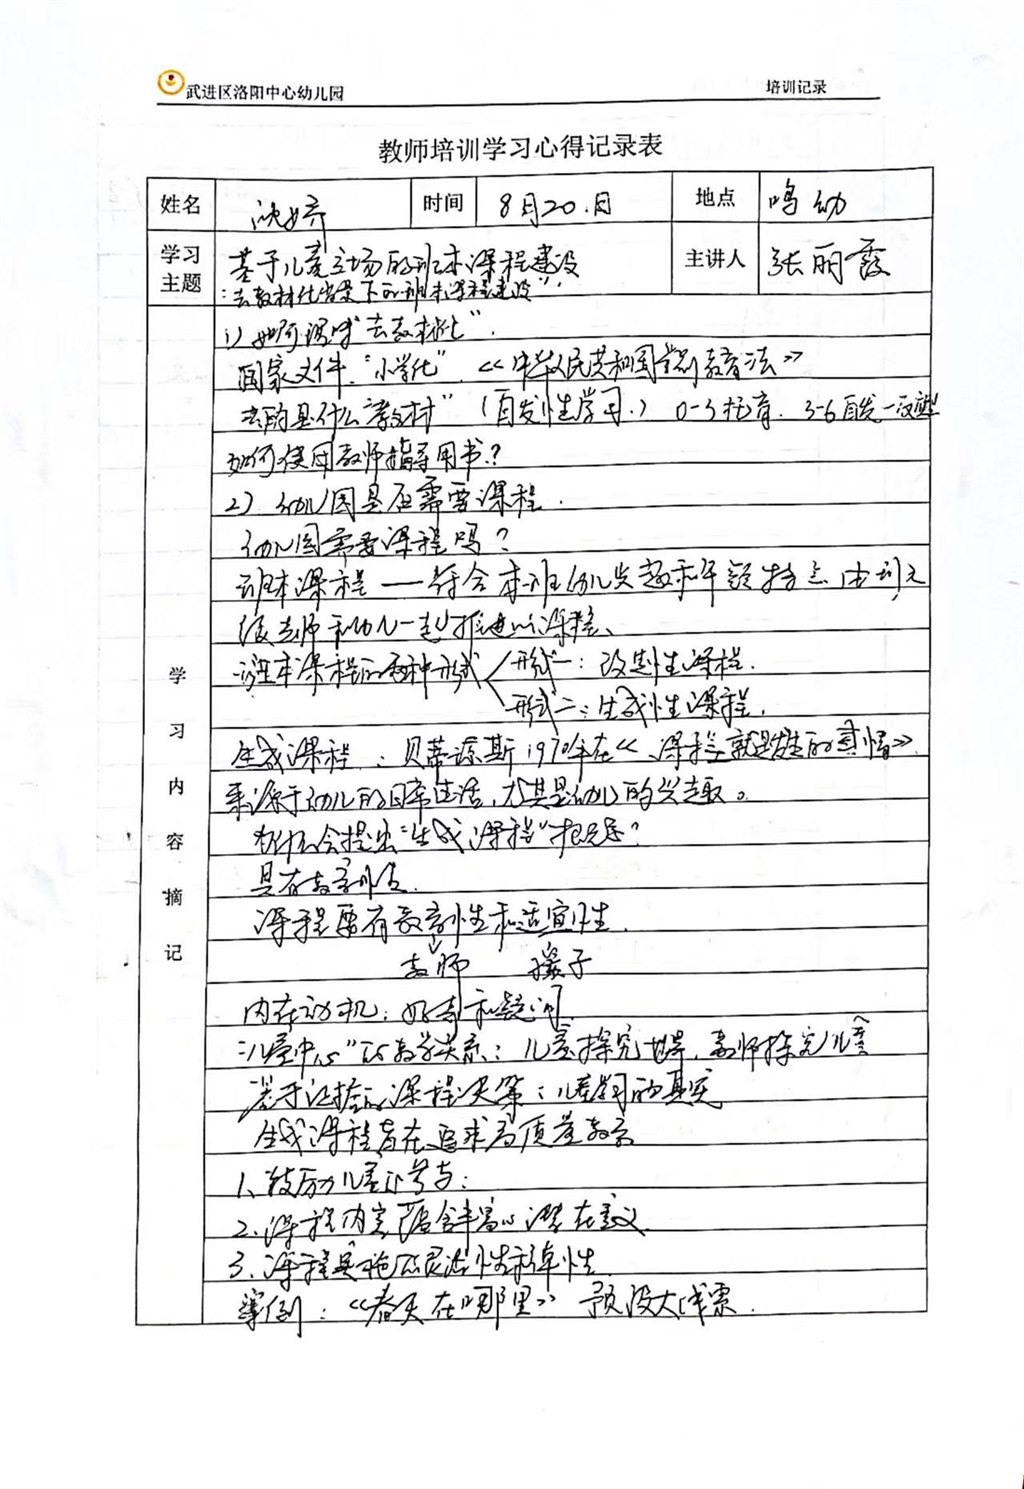 武进区洛阳中心幼儿园 培训记录
教师培训学习心得记录表
姓名 沈婷 时间 8月20.日 地点 鸣幼
学习主题 基于儿童立场的班本课程建设 主讲人 张丽霞
"去教材化背景下的班本课程建设"
学习内容摘记
1) 如何理解"去教材化".
国家文件."小学化".《中华人民共和国学前教育法》
去的是什么"教材"(自发性学习.) 0-3托育. 3-6自发一
如何使用教师指导用书.?
2) 幼儿园是否需要课程.
幼儿园需要课程吗?
班本课程——符合本班幼儿兴趣和年龄特点由班
级老师和幼儿一起推进的课程、
班本课程的两种形式 形式一:改造性课程.
形式二:生成性课程.
生成课程.:贝蒂琼斯1970年在《课程就是发生的事情》.
来源于幼儿的日常生活,尤其是幼儿的兴趣。
为什么会提出"生成课程"概念?
具有教育价值.
课程要有教育性和适宜性.
教师 孩子
内在动机:好奇和疑问.
"儿童中心"的教学关系:儿童探究世界,教师探究儿童
基于证据的课程决策:儿童学习的真实
生成课程旨在追求高质量教育
1、鼓励儿童的参与:
2、课程内容蕴含丰富的潜在意义.
3、课程实施的灵活性
案例:《春天在哪里》 预设大成票.